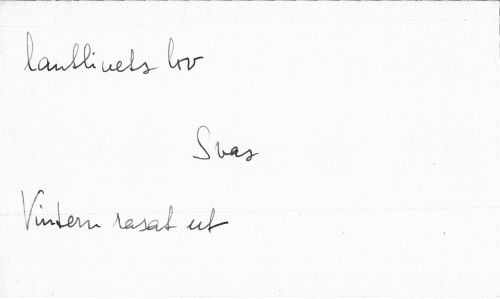 lantlivets lov
Svas
Vintern rasat ut